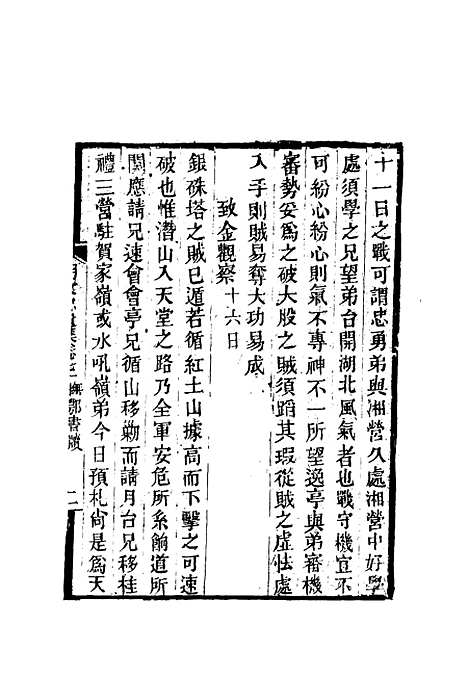 十一日之戰可謂忠勇弟與湘營久處湘營中好學
處須學之兄望弟台開湖北風氣者也戰守機宜不
可紛心紛心則氣不專神不一所望逸亭與弟審機
審勢妥為之破大股之賊須蹈其瑕從賊之虛怯處
入手則賊易奪大功易成
致金觀察十六日
銀硃塔之賊已遁若循紅土山據高而下擊之可速
破也惟潛山入天堂之路乃全軍安危所系餉道所
關應請兄速會會亭兄循山移勦而請月台兄移桂
禮三營駐賀家嶺或水吼嶺弟今日預札尙是為天
撫鄂書牘
二